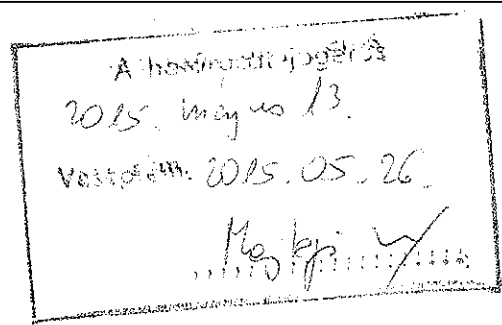 A határozat jogerős
2015. május 13.
Veszprém, 2015.05.26.